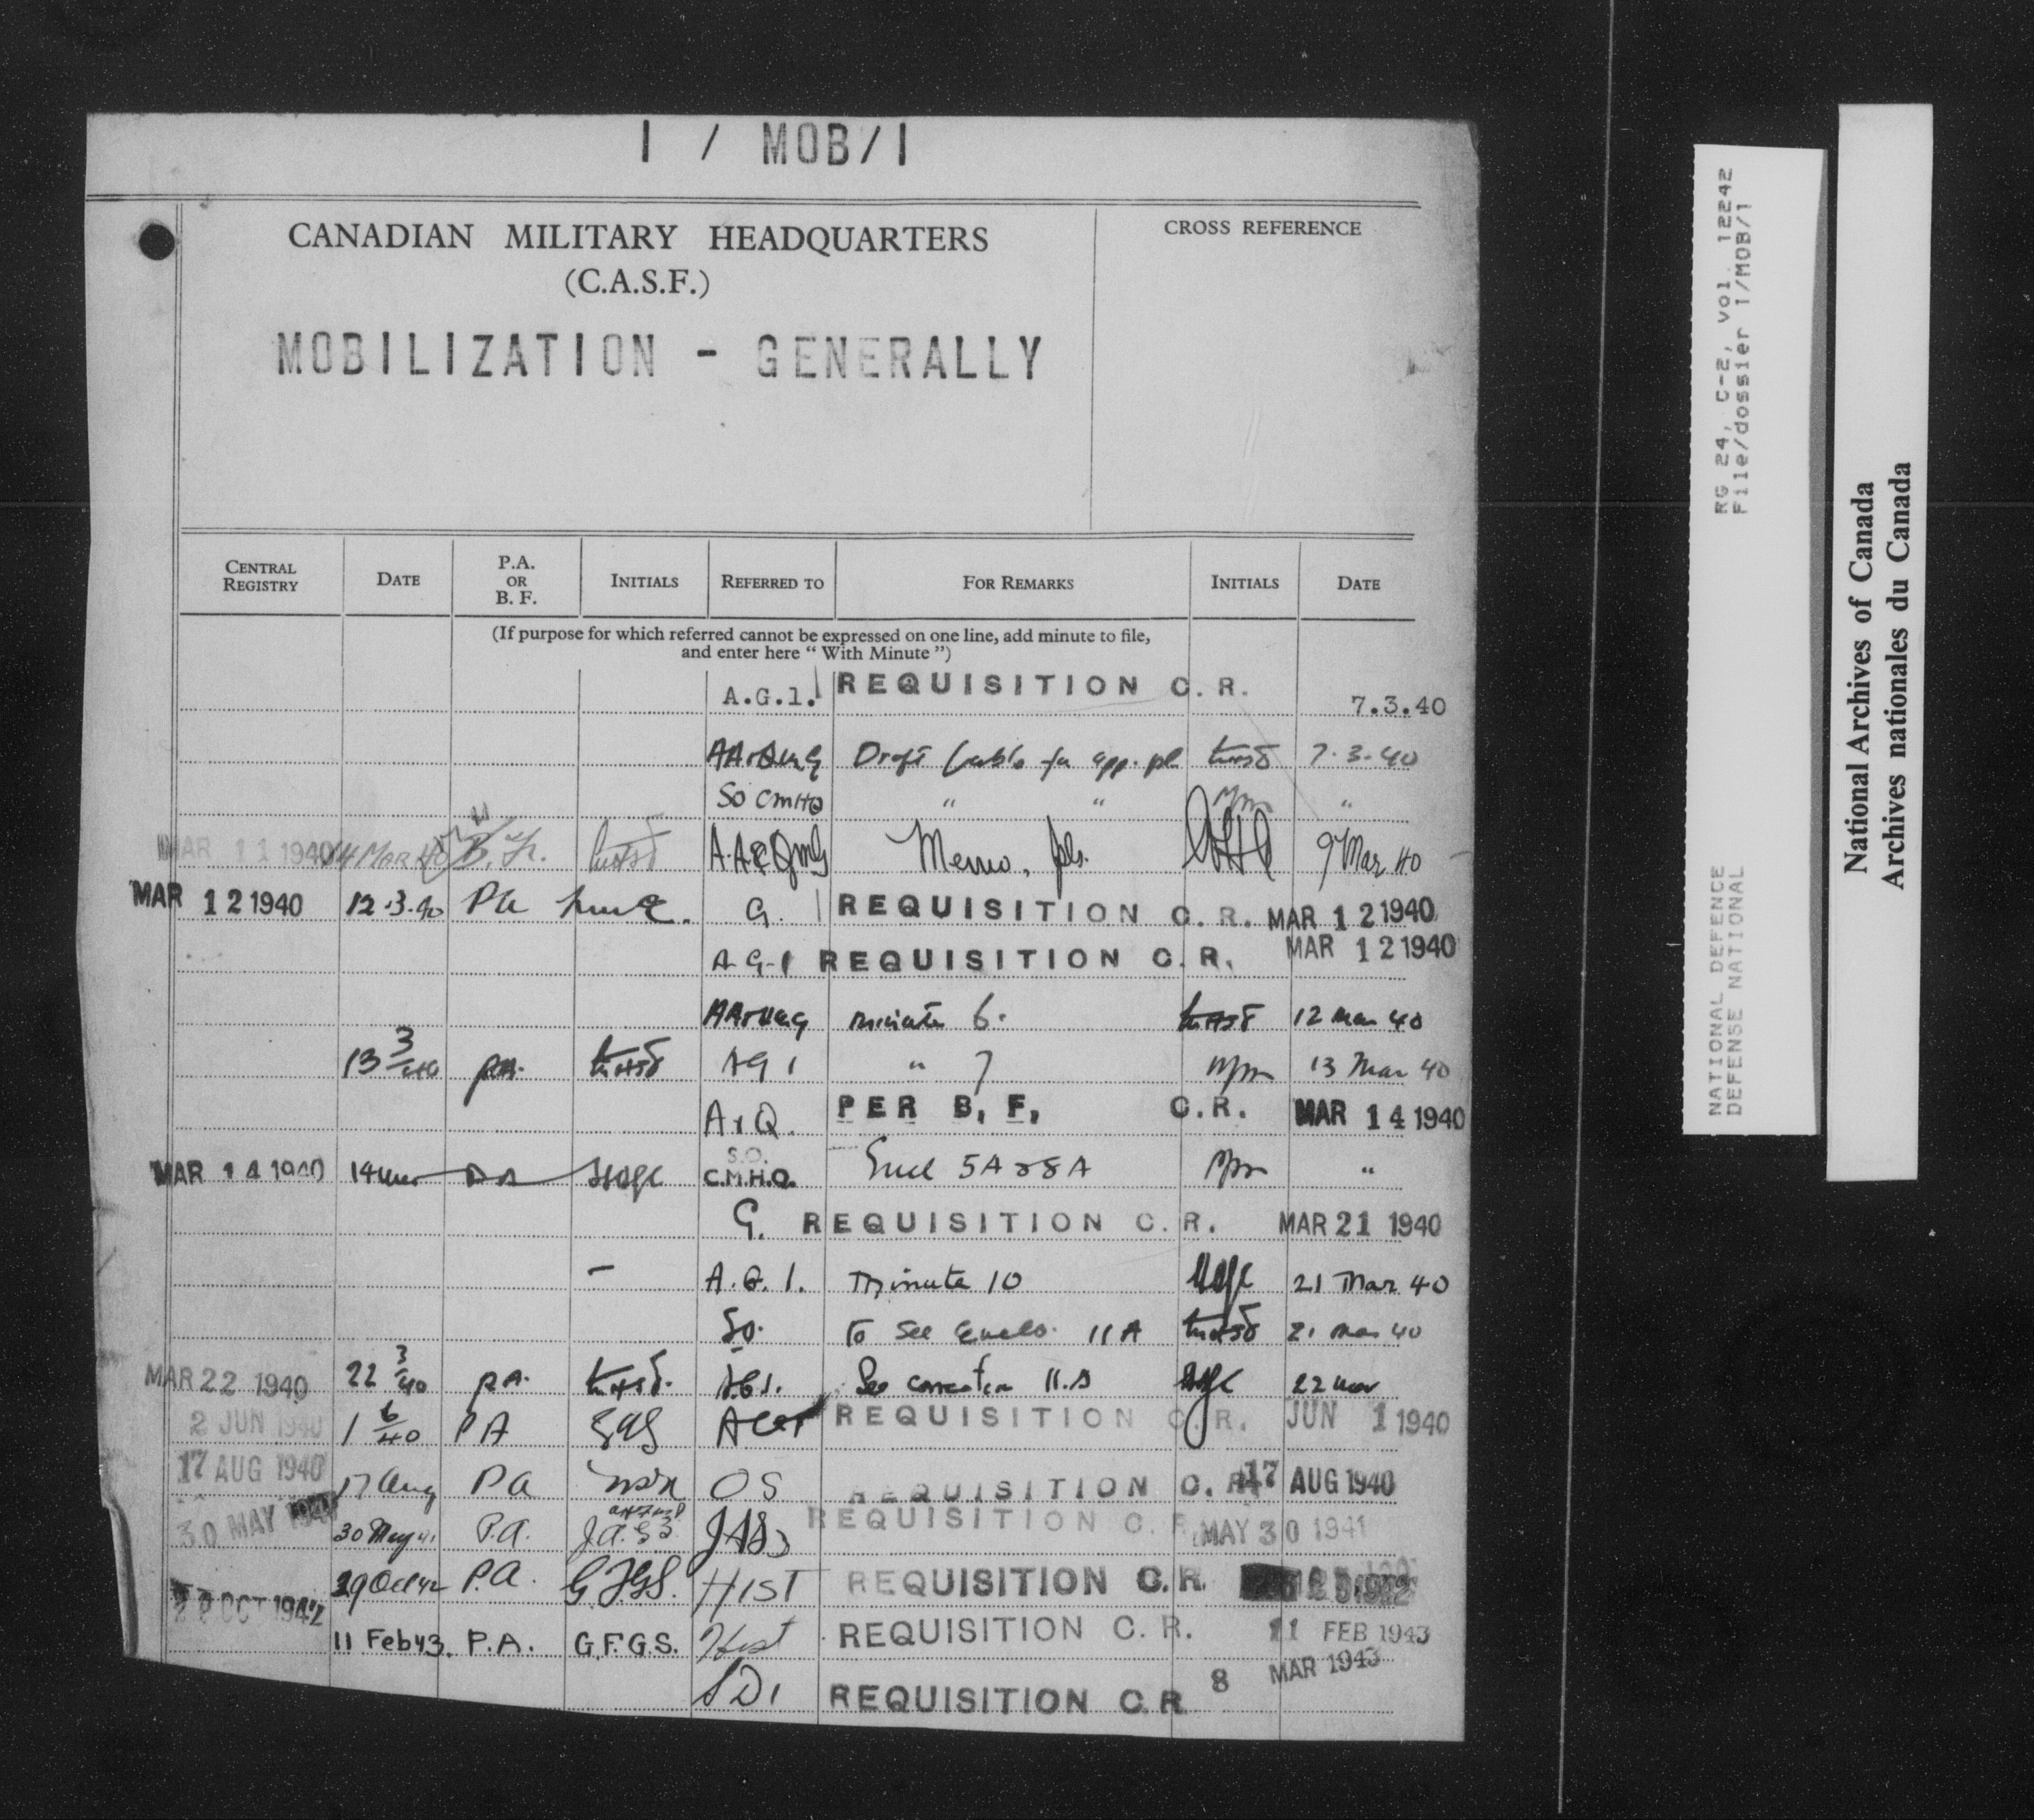 1 / MOB/1
CANADIAN MILITARY HEADQUARTERS
(C.A.S.F.)
CROSS REFERENCE
MOBILIZATION - GENERALLY
CENTRAL REGISTRY DATE P.A. OR B. F. INITIALS REFERRED TO FOR REMARKS INITIALS DATE
(If purpose for which referred cannot be expressed on one line, add minute to file,
and enter here “ With Minute ”)
A.G.1. REQUISITION C. R. 7.3.40
AA+QMG Draft 7.3.40
SO CMHQ " " "
MAR 11 1940 14 MAR 40 B.F. A.A.&QMG Memo, pls. 9 Mar 40
MAR 12 1940 12.3.40 PA G. REQUISITION C. R. MAR 12 1940
A G 1 REQUISITION C. R. MAR 12 1940
minute 6. 12 Mar 40
13 3/40 P.A. AG 1 " 7 13 Mar 40
A+Q. PER B. F. C.R. MAR 14 1940
MAR 14 1940 14 Mar PA S.O. C.M.H.Q. Encl 5A & 8A "
G. REQUISITION C. R. MAR 21 1940
A.G.1. Minute 10 21 Mar 40
SO. To see Enclo. 11A 21 Mar 40
MAR 22 1940 22 3/40 P.A. See 22 Mar
2 JUN 1940 1 6/40 PA REQUISITION C. R. JUN 1 1940
17 AUG 1940 17 Aug PA OS REQUISITION C. R. 17 AUG 1940
30 MAY 1941 30 May 41 P.A. REQUISITION C. R. MAY 30 1941
OCT 1942 29 Oct 42 P.A. G.F.G.S. HIST REQUISITION C.R.
11 Feb 43. P.A. G.F.G.S. Hist REQUISITION C. R. 11 FEB 1943
SD1 REQUISITION C.R. 8 MAR 1943
RG 24, C-2, vol. 12242
File/dossier 1/MOB/1
NATIONAL DEFENCE
DEFENSE NATIONAL
National Archives of Canada
Archives nationales du Canada